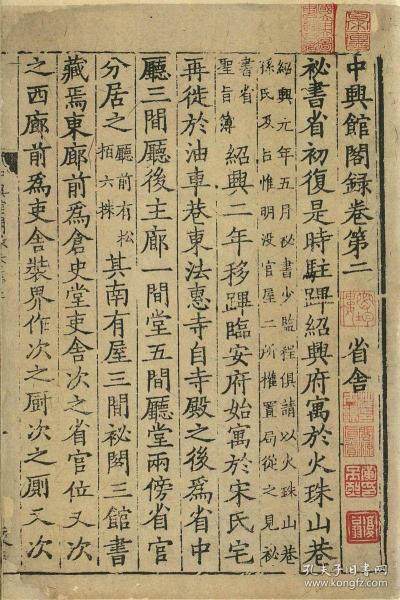 中興館閣録卷第二
省舍
祕書省初復是時駐蹕紹興府寓於火珠山巷
紹興元年五月祕書少監程俱請以火珠山巷
孫氏及吕惟明没官屋二所權置局從之見祕
書省
聖旨簿
紹興二年移蹕臨安府始寓於宋氏宅
再徙於油車巷東法惠寺自寺殿之後爲省中
廳三間廳後主廊一間堂五間廳堂兩傍省官
分居之
廳前有松
栢六株
其南有屋三間祕閣三館書
藏焉東廊前爲倉史堂吏舍次之省官位又次
之西廊前爲吏舍裝界作次之厨次之厠又次
孔夫子旧书网
www.kongfz.com